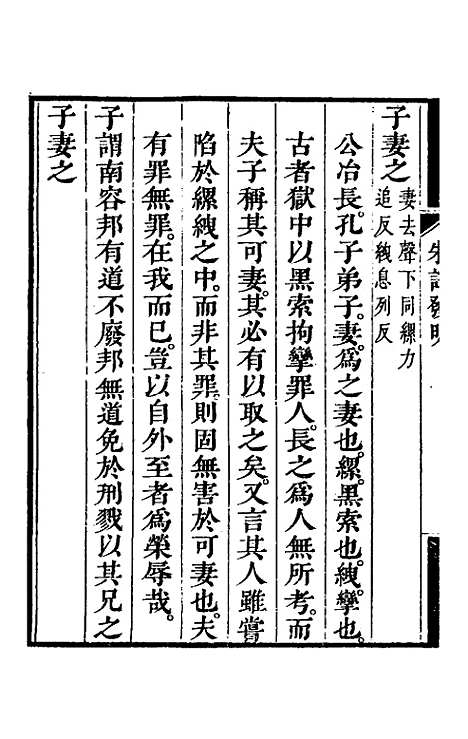 朱註發明
子妻之妻去聲下同縲力
追反絏息列反
公冶長孔子弟子。妻爲之妻也。縲黑索也。絏攣也。
古者獄中以黑索拘攣罪人。長之爲人無所考。而
夫子稱其可妻。其必有以取之矣。又言其人雖嘗
陷於縲絏之中。而非其罪。則固無害於可妻也。夫
有罪無罪。在我而已。豈以自外至者爲榮辱哉。
子謂南容邦有道不廢邦無道免於刑戮以其兄之
子妻之